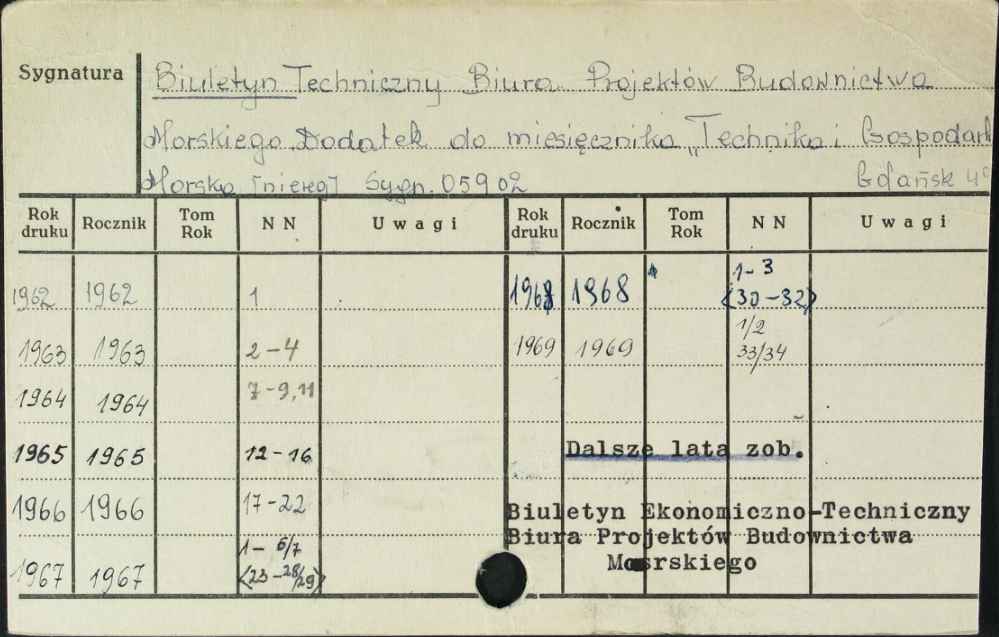 Sygnatura
Biuletyn Techniczny Biura Projektów Budownictwa
Morskiego. Dodatek do miesięcznika „Technika i Gospodark
Morska [niereg] Sygn. 05902 Gdańsk 4°
Rok druku Rocznik Tom Rok N N Uwagi Rok druku Rocznik Tom Rok N N Uwagi
1962 1962 1 1968 1968 1-3 <30-32>
1963 1963 2-4 1969 1969 1/2 33/34
1964 1964 7-9, 11
1965 1965 12-16 Dalsze lata zob.
1966 1966 17-22 Biuletyn Ekonomiczno-Techniczny
Biura Projektów Budownictwa
1967 1967 1-6/7 <23-28/29> Morskiego